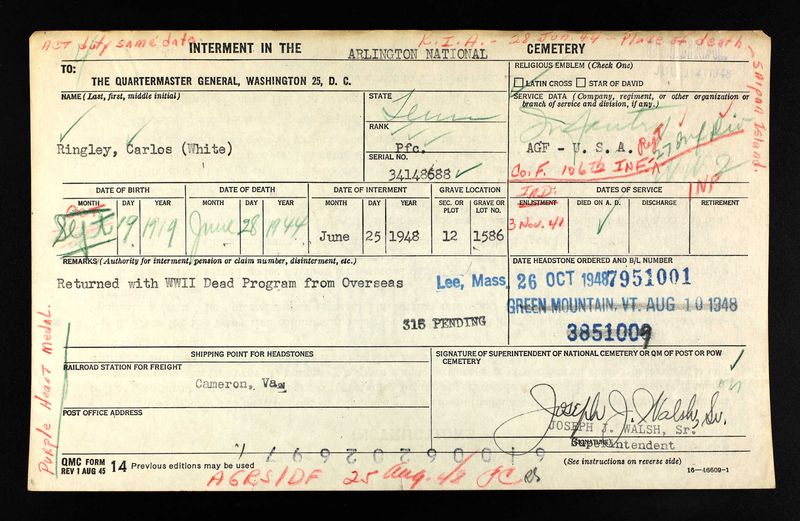 Act duty same date.
K.I.A. - 28 Jun. 44 - Place of death - Saipan Island.
INTERMENT IN THE ARLINGTON NATIONAL CEMETERY
TO:
THE QUARTERMASTER GENERAL, WASHINGTON 25, D. C.
RELIGIOUS EMBLEM (Check One)
LATIN CROSS STAR OF DAVID
NAME (Last, first, middle initial)
Ringley, Carlos (White)
STATE
Tenn
RANK
Pfc.
SERIAL NO.
34148688
SERVICE DATA (Company, regiment, or other organization or branch of service and division, if any.)
AGF - U. S. A.
Co. F. 106th INF. Regt
27 Inf Div
DATE OF BIRTH
MONTH DAY YEAR
Sept 19 1919
DATE OF DEATH
MONTH DAY YEAR
June 28 1944
DATE OF INTERMENT
MONTH DAY YEAR
June 25 1948
GRAVE LOCATION
SEC. OR PLOT GRAVE OR LOT NO.
12 1586
DATES OF SERVICE
IND. INF
ENLISTMENT DIED ON A. D. DISCHARGE RETIREMENT
3 Nov. 41
REMARKS (Authority for interment, pension or claim number, disinterment, etc.)
Returned with WWII Dead Program from Overseas
316 PENDING
DATE HEADSTONE ORDERED AND B/L NUMBER
Lee, Mass. 26 OCT 1948 7951001
GREEN MOUNTAIN, VT. AUG 10 1948
3851009
SHIPPING POINT FOR HEADSTONES
RAILROAD STATION FOR FREIGHT
Cameron, Va.
POST OFFICE ADDRESS
SIGNATURE OF SUPERINTENDENT OF NATIONAL CEMETERY OR QM OF POST OR POW CEMETERY
Joseph J. Walsh, Sr.
JOSEPH J. WALSH, Sr.
Superintendent
Purple Heart Medal.
QMC FORM
REV 1 AUG 45 14 Previous editions may be used
(See instructions on reverse side)
16—46609-1
AGRS/DF 25 Aug. 48